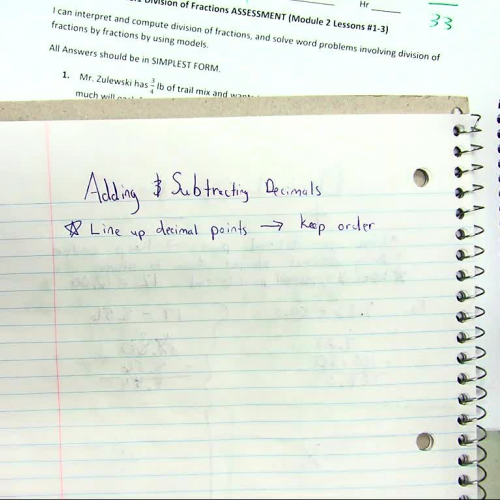 Division of Fractions ASSESSMENT (Module 2 Lessons #1-3)
Hr
33
I can interpret and compute division of fractions, and solve word problems involving division of
fractions by fractions by using models.
All Answers should be in SIMPLEST FORM.
1. Mr. Zulewski has 3/4 lb of trail mix and
much will
Adding & Subtracting Decimals
☆ Line up decimal points → keep order